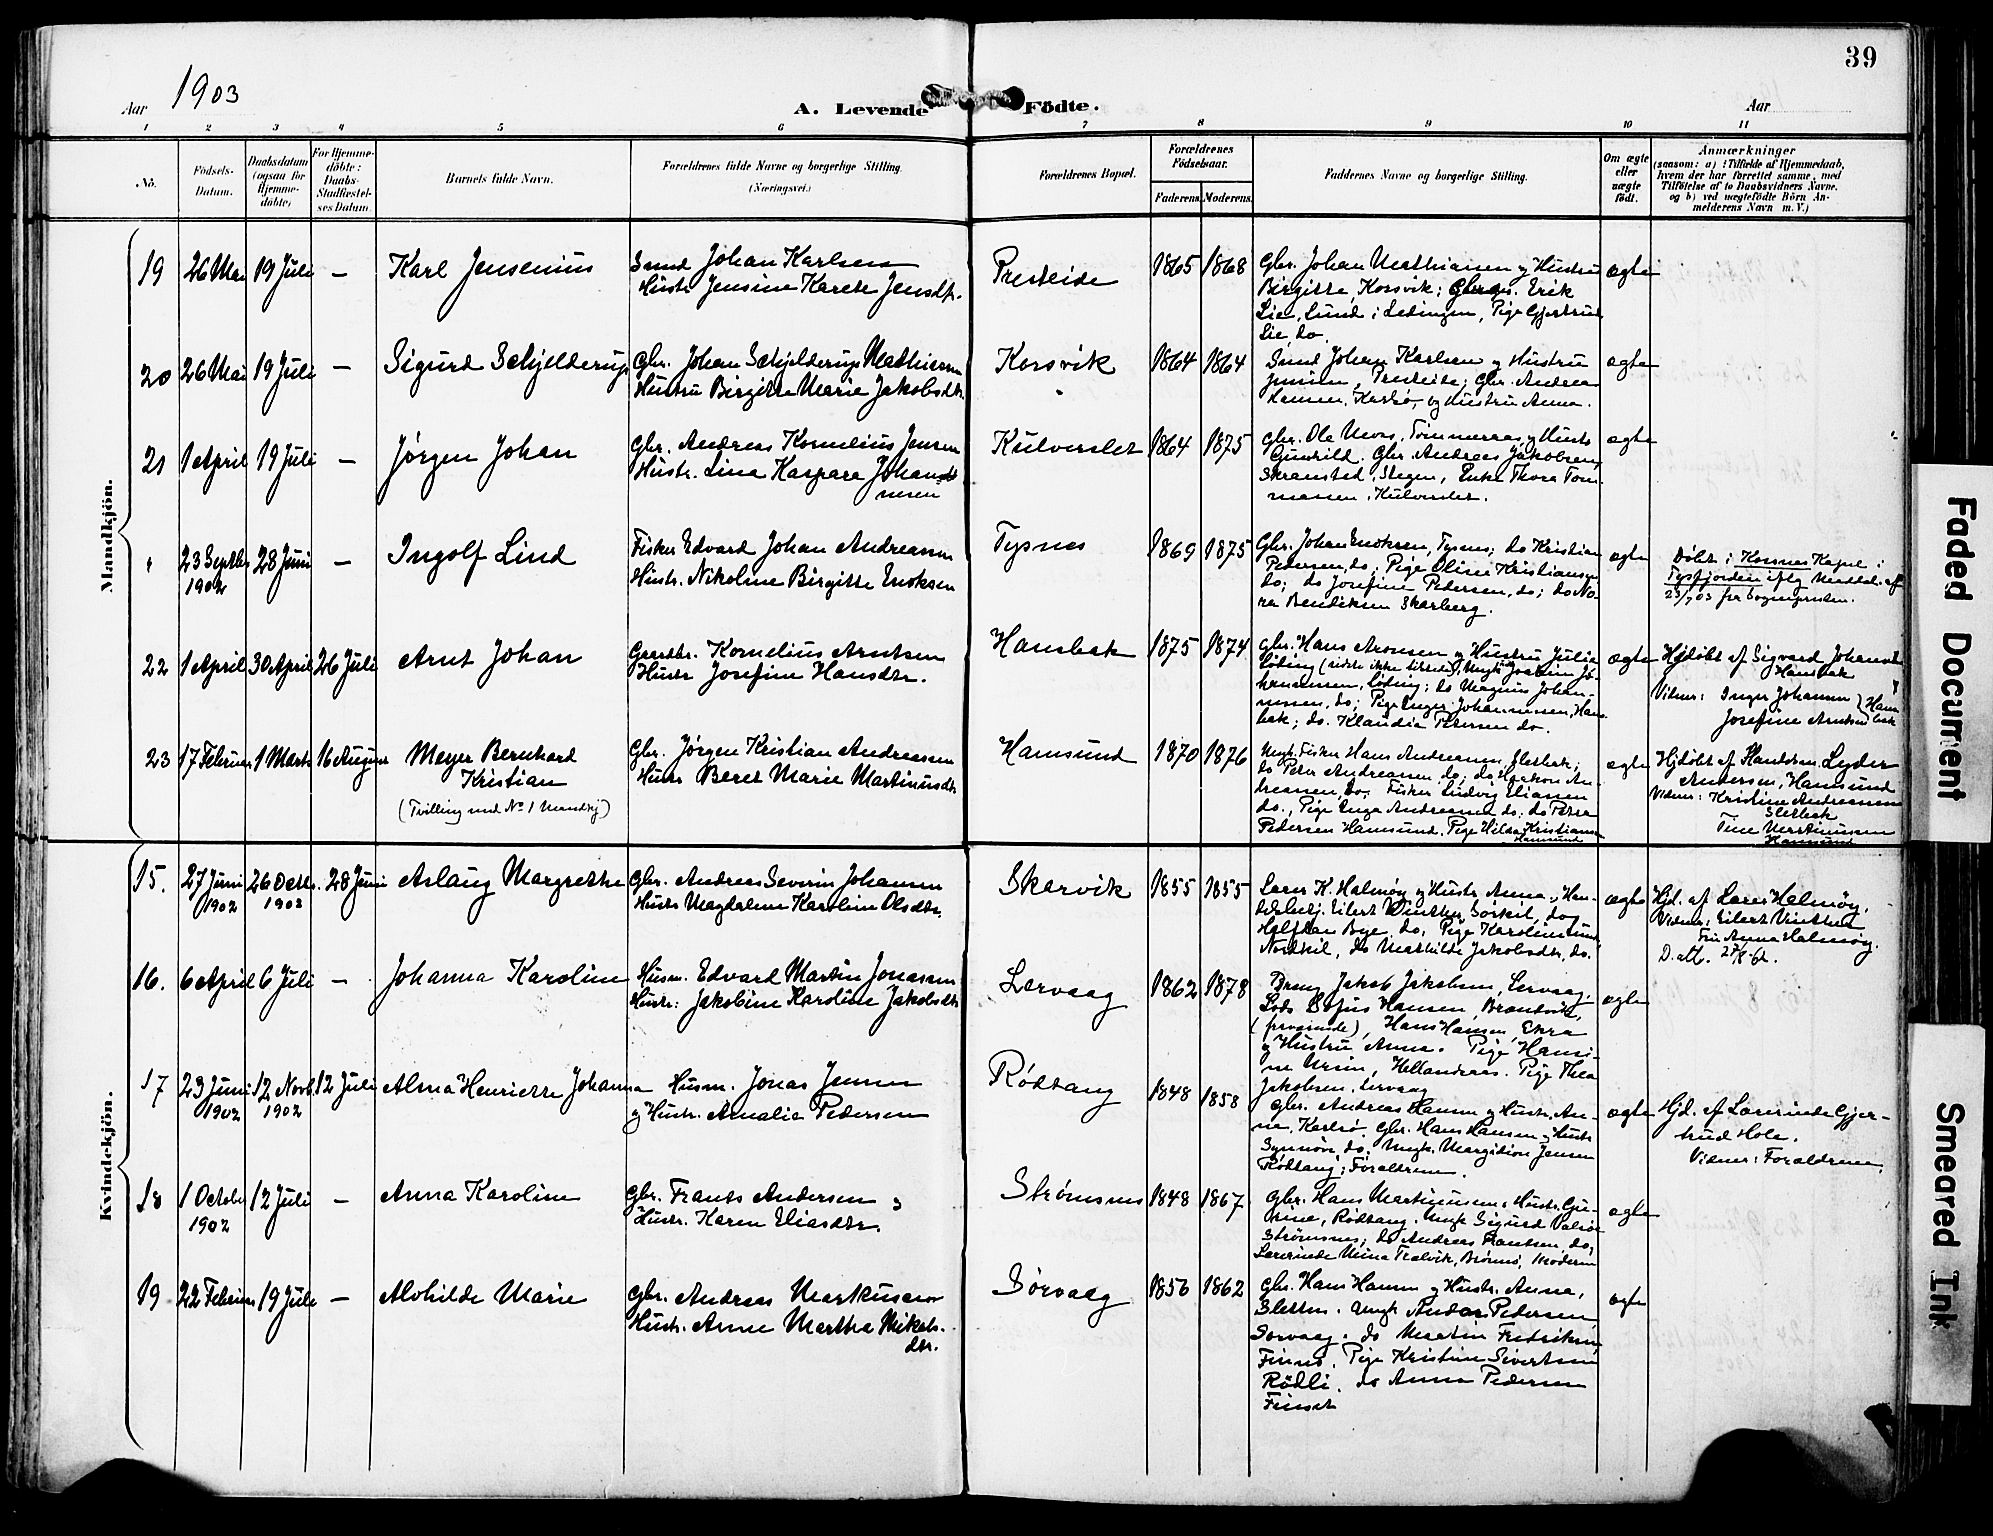 39
Aar 1903
A. Levende Födte.
Aar
1 2 3 4 5 6 7 8 9 10 11
No.
Födsels-
Datum.
Daabsdatum
(ogsaa for
Hjemme-
döbte)
For Hjemme-
döbte:
Daabs-
Stadfæstel-
ses Datum.
Barnets fulde Navn.
Forældrenes fulde Navne og borgerlige Stilling.
(Næringsvei.)
Forældrenes Bopæl.
Forældrenes
Födselsaar.
Faderens.
Moderens.
Faddernes Navne og borgerlige Stilling.
Om ægte
eller
uægte
födt.
Anmærkninger
(saasom: a) i Tilfælde af Hjemmedaab,
hvem der har forrettet samme, med
Tilföielse af to Daabsvidners Navne,
og b) ved uægtefödte Börn An-
melderens Navn m. V.)
Mandkjön.
19 26 Mai 19 Juli — Karl Jensenius
Johan Karlsen
Hustr. Jensine Karete Jensdtr.
Presteide 1865 1868
Gbr. Johan Mathiassen og Hustru
Birgitte, Korsvik; Erik
Lie, Lund i Lødingen, Pige Gjertrud
Lie, do.
ægte
20 26 Mai 19 Juli — Sigurd Schjelderup
Gbr. Johan Schjelderup Mathisen
Hustru Birgitte Marie Jakobsdtr.
Korsvik 1864 1864
Johan Karlsen og Hustru
Jensine, Presteide; Gbr. Andreas
Hansen, Karlsø, og Hustru Anna.
ægte
21 1 April 19 Juli — Jørgen Johan
Gbr. Andreas Kornelius Jensen
Hustr. Lina Kaspara Johan
nesen
Kulverslet 1864 1875
Gbr. Ola Tømmeraas, og Hustr.
Gunhild. Gbr Andreas Jakobsen,
Skranstad, Stegen, Enke Thora Tom-
massen, Kulverslet.
ægte
23 Septbr 28 Juni — Ingolf Lind
1902
Fisker Edvard Johan Andreassen
Hustr. Nikoline Birgitte Enoksen
Tysnes 1869 1875
Gbr. Johan Enoksen, Tysnes; do Kristian
Pedersen, do; Pige Oline Kristiansen
do; do Josefine Pedersen, do; do No-
ra Bendiksen Skarberg.
ægte
Døbt i Korsnes Kapel i
Tysfjorden iflg Meddel. af
23/7 03 fra Sogneprsten.
22 1 April 30 April 26 Juli Arnt Johan
Gaardbr. Kornelius Arntsen
Hustr Josefine Hansdtr.
Hansbak 1875 1874
Gbr. Hans Aronsen og Hustru Julie
Løding (sidste ikke tilstede), Ungk Joakim Jo-
hannessen, Løding; do Magnus Johan-
nessen, do; Pige Inger Johannessen, Hans-
bak; do. Klaudia Petersen do.
ægte
Hjdøbt af Sigvard Johannes
Hansbak
Vidner: Inger Johannesen } Hans
Josefine Arntsen } bak
23 17 Februar 1 Marts 16 August Meyer Bernhard
Kristian
(Tvilling med No 1 Mandkj)
Gbr. Jørgen Kristian Andreassen
Hustr Beret Marie Martinusdtr
Hamsund 1870 1876
Ungk. Fisker Hans Andreassen, Sletbak;
do Peter Andreassen do; do Haakon An-
dreassen, do. Fisker Ludvig Eliassen
do., Pige Inga Andreassen do; do Petra
Pedersen Hamsund, Pige Hilda Kristiansen
Hamsund
ægte
Hjdøbt af Handelsm. Lyder
Andersen, Hamsund
Vidner: Kristine Andreassen
Sletbak
Tine Martinussen
Hamsund
Kvindekjön.
15. 27 Juni 26 Octb. 28 Juni Aslaug Margrethe
1902 1902
Gbr. Andreas Severin Johansen
Hustr Magdalena Karoline Olsdtr.
Skarvik 1855 1855
Lærer K. Halmøy og Hustr. Anna, Han-
delsbetj. Eilert Winther, Sørkil, do
Halfdan Bye, do, Pige Karoline
Nordkil, do Mathilde Jakobsdtr, do.
ægte
Hjd. af Lærer Halmøy.
Vidner: Eilert Vinther
Fru Anna Halmøy.
D. att.
16. 6 April 6 Juli — Johanna Karoline
Husm. Edvard Martin Jonassen
Hustr: Jakobine Karoline Jakobsdtr
Lervaag 1862 1878
Jakob Jakobsen, Lervaag,
Lods Hansen, Brandvik,
(fraværende), Hans Hansen, Ekra
og Hustru Anna. Pige Hansi-
ne Ursin, Hellandnes. Pige Thea
Jakobsen, Lervaag
ægte
17 23 Juni 12 Novb. 12 Juli Alma Henriette Johanna
1902 1902
Husm. Jonas Jensen
og Hustr. Amalia Pedersen
Rødtang 1848 1858
Gbr. Andreas Hansen og Hustr. An-
na, Karlsø. Gbr. Hans Hansen og Hustr
do. Ungk. Jensen
Rødtang; Forældrene.
ægte
Hjd. af Lærerinde Gjer-
trud Hole.
Vidner: Forældrene.
18 1 October 12 Juli — Anna Karoline
1902
Gbr. Frants Andersen og
Hustr. Karen Eliasdtr.
Strømsnes 1848 1867
Gbr. Hans Martinussen, Hustr. Gu-
rine, Rødtang. Ungk Sigurd
Strømsnes; do Andreas Frantsen, do;
Lærerinde Moderen
ægte
19 22 Februar 19 Juli — Alvhilde Marie
Gbr. Andreas Markussen
Hustr. Anne Martha Mikals-
dtr.
Sørvaag 1856 1862
Gbr. Hans Hansen og Hustr. Anna,
Sletten. Ungk Andor Pedersen
Sørvaag. do Martin Fredriksen
Finnes. Pige Kristine Sivertsen
Rødli. do Anna Pedersen
Finset
ægte
Faded Document
Smeared Ink